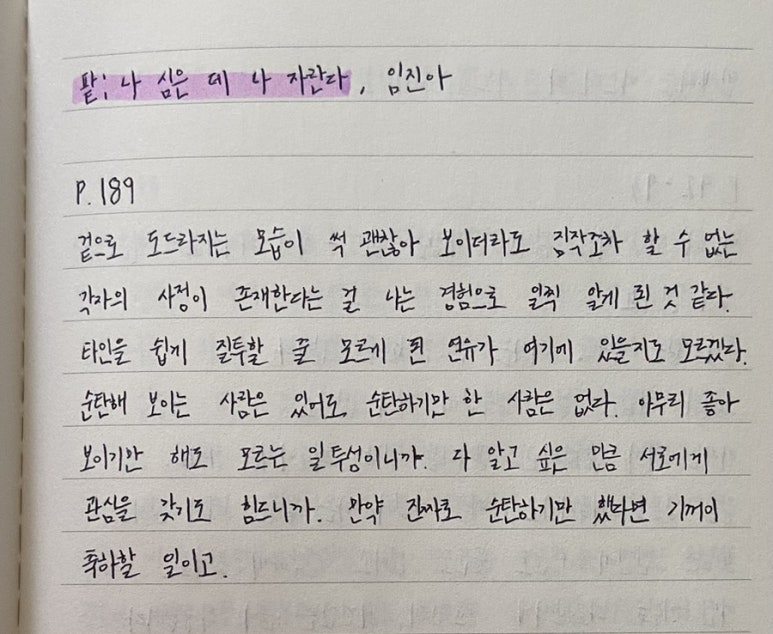 팥: 나 심은 데 나 자란다, 임진아
P. 189
겉으로 도드라지는 모습이 썩 괜찮아 보이더라도 짐작조차 할 수 없는
각자의 사정이 존재한다는 걸 나는 경험으로 일찍 알게 된 것 같다.
타인을 쉽게 질투할 줄 모르게 된 연유가 여기에 있을지도 모르겠다.
순탄해 보이는 사람은 있어도, 순탄하기만 한 사람은 없다. 아무리 좋아
보이기만 해도 모르는 일 투성이니까. 다 알고 싶은 만큼 서로에게
관심을 갖기도 힘드니까. 만약 진짜로 순탄하기만 했다면 기꺼이
축하할 일이고.